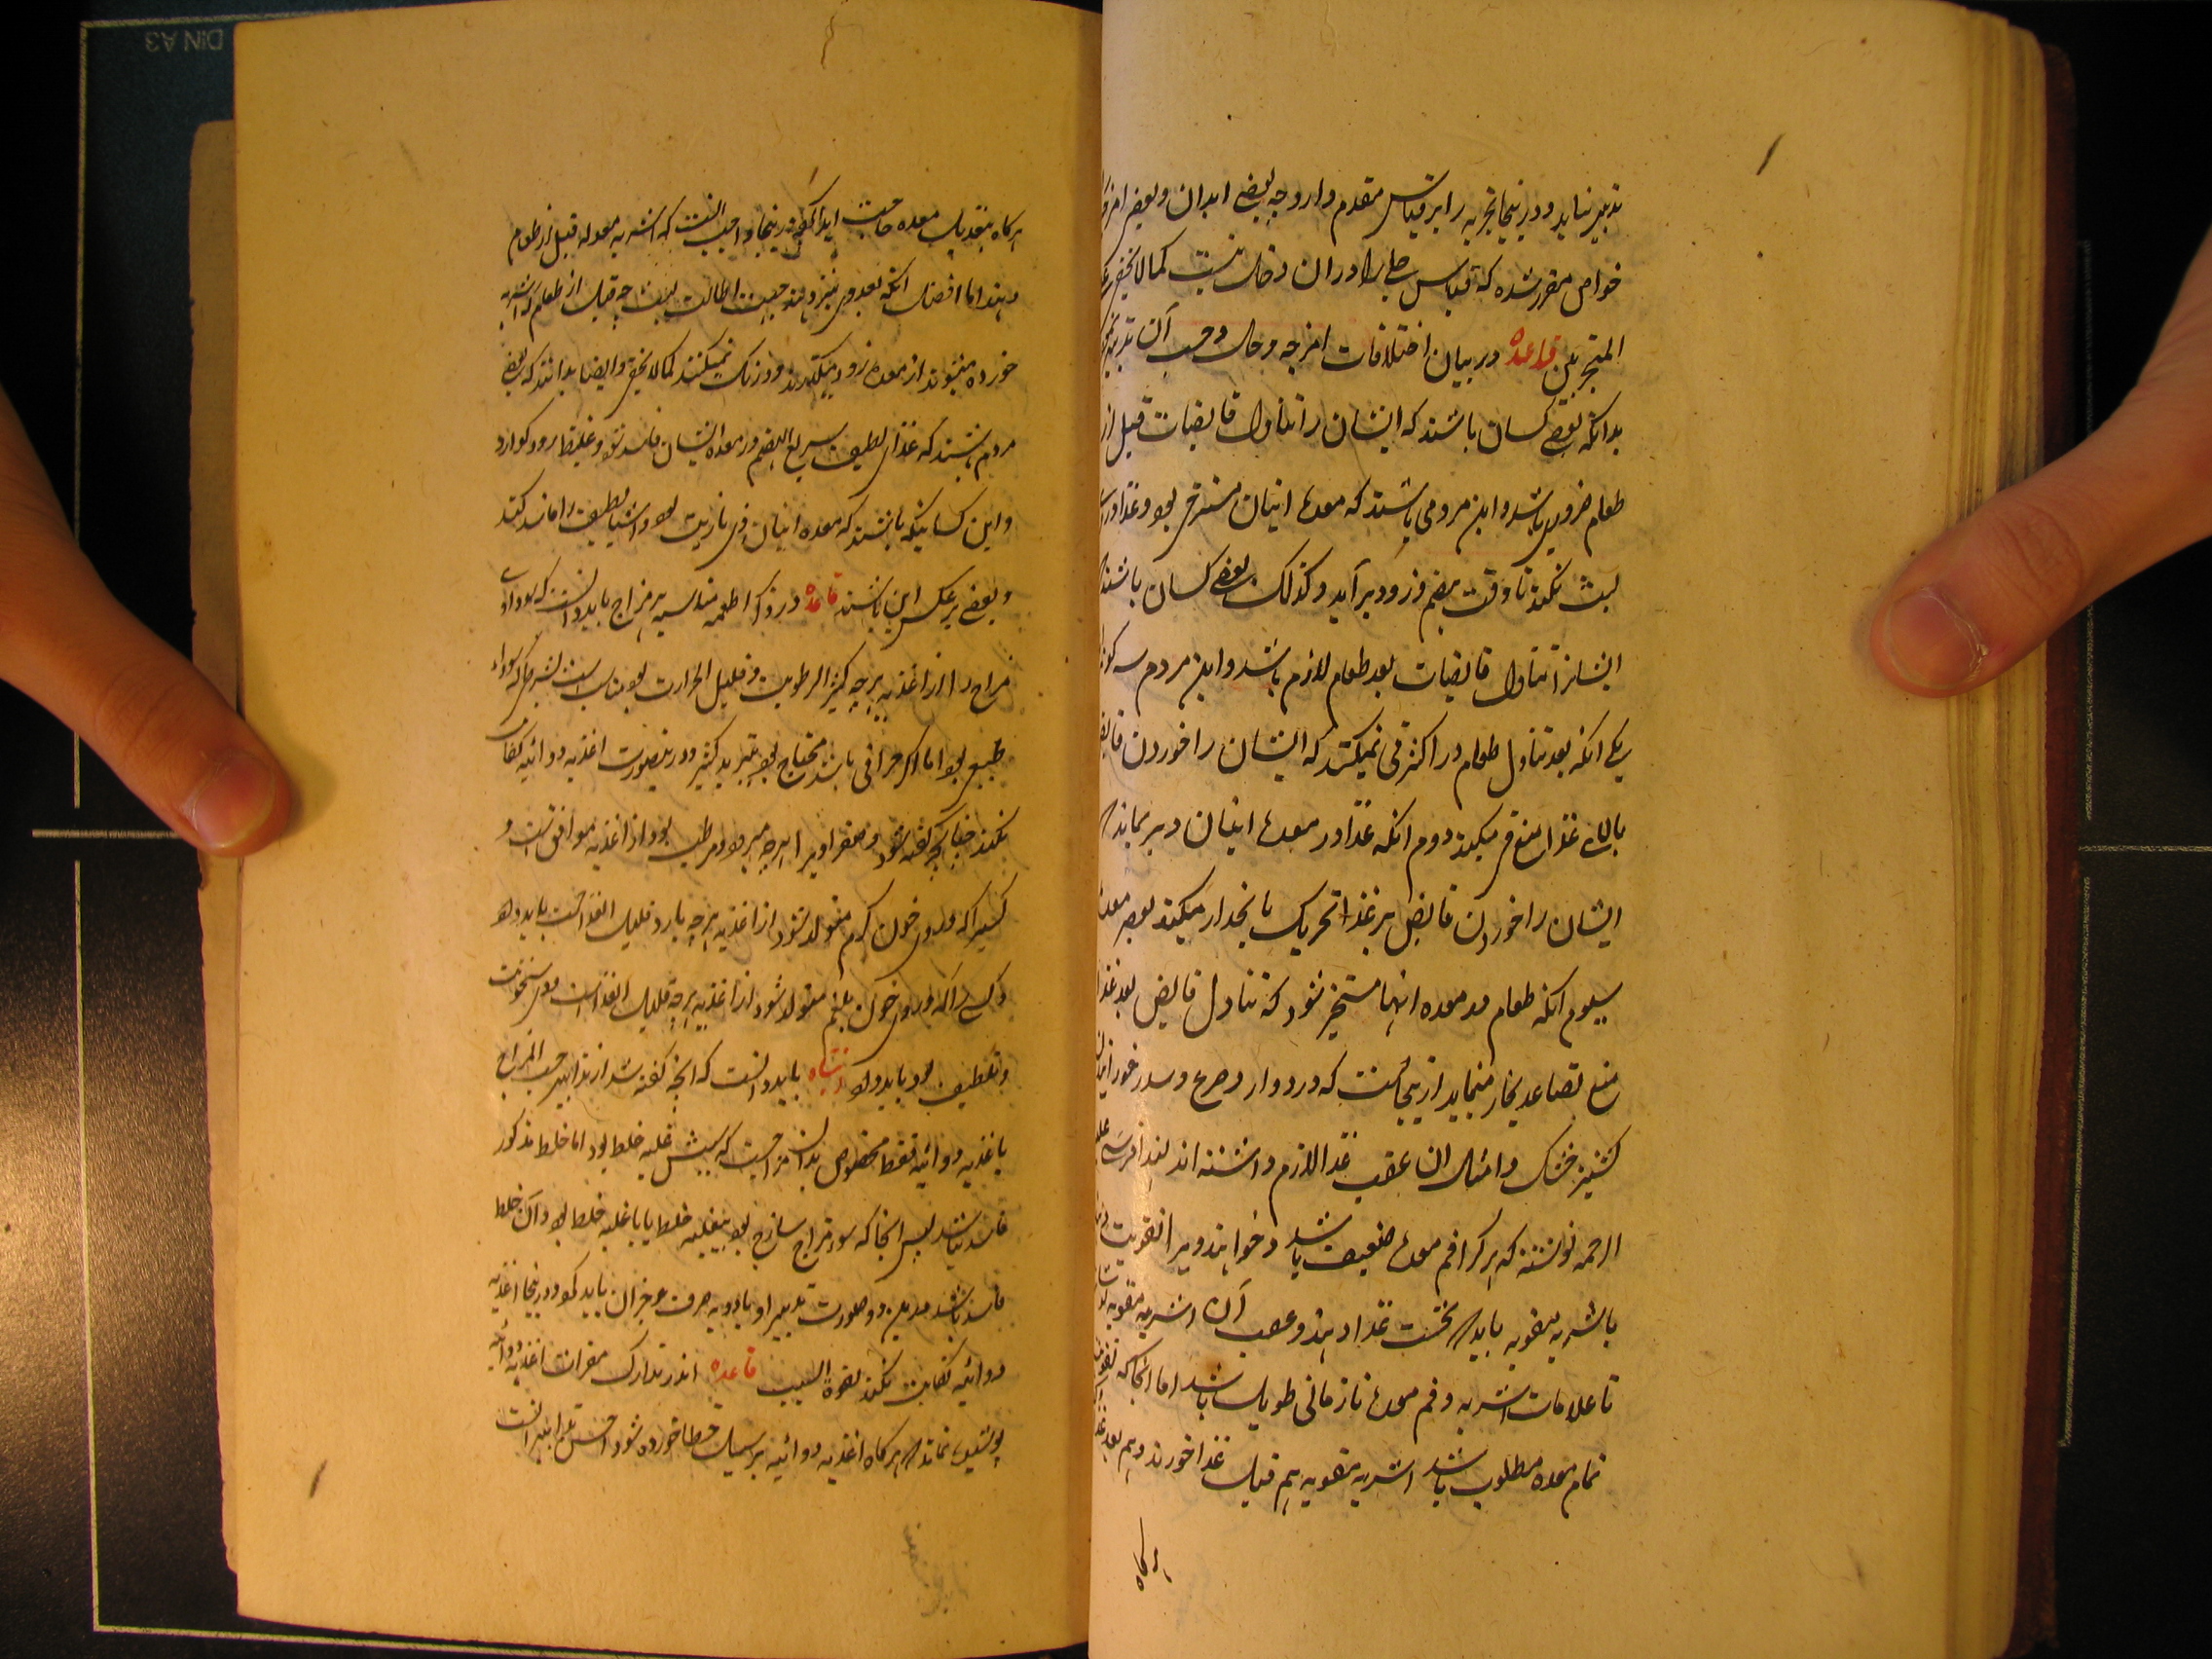 تدبیر نماید و درینجا تجربه را بر قیاس مقدم دارو چه بعضی ابدان و بعض امزجه
خواص مقرر شده که قیاس طبی را دران دخل نیست کمالا یخفی علی
المتجربین قاعده در بیان اختلافات امزجه و حال و حسب آن تدبیر
بدانکه بعضی کسان باشند که ایشان را تناول قابضات قبل از
طعام ضروری باشد و این مردمی باشند که معدهٔ اینان مسترخی بود و غذا در
لبث نکند تا وقت هضم و زود برآید و کذلک بعضی کسان باشند
ایشانرا تناول قابضات بعد طعام لازم باشد و این مردم سه گونه
یکی آنکه بعد تناول طعام در اکثر قی میکنند که ایشان را خوردن قابض
بالای غذا منع قی میکند دوم آنکه غذا در معدهٔ اینان دیر بماند
ایشان را خوردن قابض بر غذا تحریک بانحدار میکند بعصر معده
سیوم آنکه طعام در معده اینها متبخر شود که تناول قابض بعد غذا
منع تصاعد بخار مینماید ازینجاست که در دوار و صرع و سدر خورانیدن
کشنیز خشک و امثال آن عقب غذا لازم داشته اند لهذا قرشی علیه
الرحمه نوشته که هر کرا فم معدهٔ ضعیف باشد و خواهند ویرا تقویت دهند
باشربه مقویه باید که نخست غذا دهند و عقب آن اشربه مقویه
تا علامات اشربه و فم معدهٔ تا زمانی طویل باشد اما انجا که تقویت
تمام معده مطلوب باشد اشربه مقویه هم قبل غذا خورند و هم بعد غذا
هرگاه
هرگاه بتعدیل معده حاجت درینجا واجب آنست که اشربه معدله قبل از طعام
دهند اما افضل آنکه بعد وی نیز دهند جهت اطالت لبث چه قبل از طعام که اشربه
خورده میشوند از معده زود میگذرند و درنگ نمیکنند کمالا یخفی و ایضا بدانند که بعضی
مردم باشند که غذای لطیف سریع الهضم در معدهٔ ایشان فاسد شود و غلیظ را زود گوارد
و این کسانیکه باشند که معده اینان قوی ناریت بود و اشیا لطیف را فاسد کند
و بعضی برعکس این باشند قاعده در ذکر اطعمه مناسبه هر مزاج باید دانست که سوداوی
مزاج را از اغذیه هرچه کثیر الرطوبت و قلیل الحرارت بود مناسب است بشرطیکه سوداء
طبیعی بود اما اگر حراقی باشد محتاج بود بتبرید کثیر و درینصورت اغذیه دوائیه کفایت
نکند چنانچه گفته شود و صفراویرا هرچه مبرد و مرطب بود از اغذیه موافق است و
کسیرا که در وی خون گرم متولد شود از اغذیه هرچه بارد قلیل الغذاست باید داد
و کسی را که در وی خون بلغم متولد شود از اغذیه هرچه قلیل الغذاست مع سخونت
و تلطیف بود باید داد انتباه باید دانست که آنچه گفته شد از تدابیر حسب المزاج
باغذیه دوائیه فقط مخصوص بدان مزاجیست که سببش غلبه خلط بود اما خلط مذکور
فاسد نباشد پس انجا که سوء مزاج ساذج بود بیغلبه خلط یا با غلبه خلط بود و آن خلط
فاسد باشد درین دو صورت تدبیر او بادویه صرف و جز آن باید کرد و درینجا اغذیه
دوائیه کفایت نکند لقوة السبب قاعده اندر تدارک مضرات اغذیه دوائیه
پوشیده نماند که هرگاه اغذیه دوائیه بر سبیل خطا خورده شود احسن تدابیر آنست